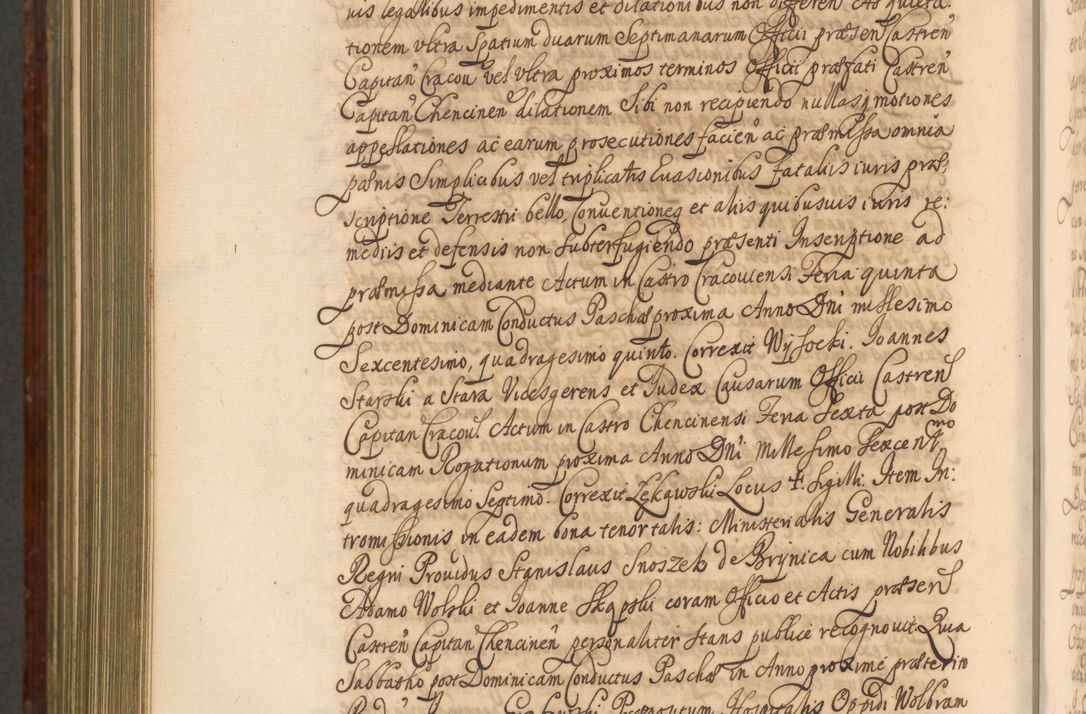 uis legalibus impedimentis et dilationibus non differen Ac quieta:
tionem vltra Spatium duarum Septimanarum Officii præsen Castren
Capitan Cracou vel vltra proximos terminos Officii præfati Castren
Capitan Chencinen dilationem Sibi non recipiendo nullasq motiones
appellationes ac earum prosecutiones facien ac præmissa omnia
pænis Simplicibus vel triplicatis Euasionibus fatalis iuris præ:
scriptione Terrestri bello, Conuentiones et aliis quibusuis iuris re:
mediis et defensis non subterfugiendo præsenti Inscriptione ad
præmissa mediante Actum in Castro Cracouiensi Feria quinta
post Dominicam Conductus Paschæ proxima Anno Dni millesimo
Sexcentesimo, quadragesimo quinto. Correxit Wysocki. Joannes
Starski a Stara Vicesgerens et Judex Causarum Officii Castren
Capitan Cracou. Actum in Castro Chencinensi Feria Sexta post Do
minicam Rogationum proxima Anno Dni Millesimo Sexcentmo
quadragesimo Septimo. Correxit Zękawski Locus +. Sigilli. Item In:
tromissionis in eadem bona tenor talis: Ministerialis Generalis
Regni Prouidus Stanislaus Snoszek de Brynica cum Nobilibus
Adamo Wolski et Joanne Skąpski coram Officio et Actis præsen
Castren Capitan Chencinen personaliter stans publice recognouit. Quia
Sabbatho post Dominicam Conductus Paschæ in Anno proxime præterito
Præpositum Hospitalis Oppidi Wolbram